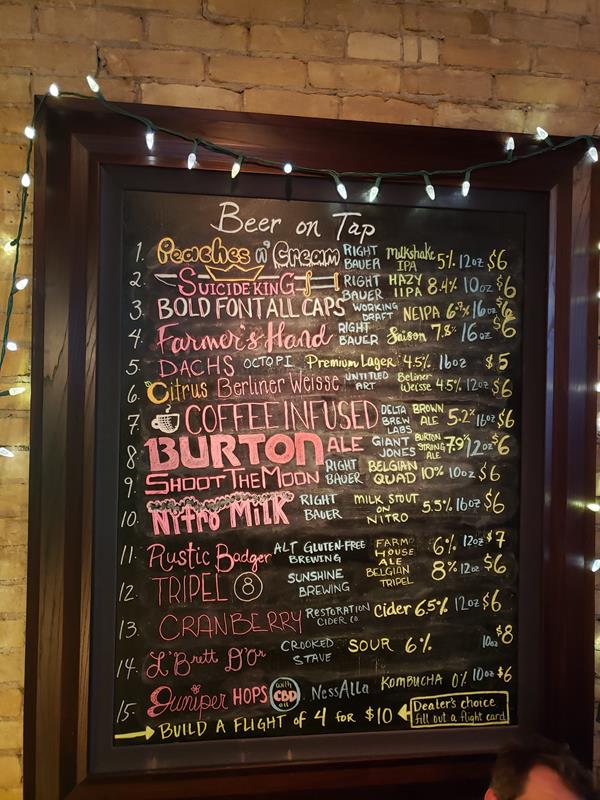 Beer on Tap
1. Peaches n' Cream RIGHT BAUER Milkshake IPA 5% 12oz $6
2. SUICIDE KING RIGHT BAUER HAZY IIPA 8.4% 10oz $6
3. BOLD FONT ALL CAPS WORKING DRAFT NEIPA 6.7% 16oz $6
4. Farmer's Hand RIGHT BAUER Saison 7.8% 16oz $6
5. DACHS OCTOPI Premium Lager 4.5% 16oz $5
6. Citrus Berliner Weisse UNTITLED ART Beliner Weisse 4.5% 12oz $6
7. COFFEE INFUSED DELTA BREW LABS BROWN ALE 5.2% 16oz $6
8. BURTON ALE GIANT JONES BURTON STRONG ALE 7.9% 12oz $6
9. SHOOT THE MOON RIGHT BAUER BELGIAN QUAD 10% 10oz $6
10. Nitro Milk RIGHT BAUER MILK STOUT ON NITRO 5.5% 16oz $6
11. Rustic Badger ALT GLUTEN-FREE BREWING FARM HOUSE ALE 6% 12oz $7
12. TRIPEL 8 SUNSHINE BREWING BELGIAN TRIPEL 8% 12oz $6
13. CRANBERRY RESTORATION CIDER CO. Cider 6.5% 12oz $6
14. L'Brett D'Or CROOKED STAVE SOUR 6% 10oz $8
15. Juniper HOPS with CBD oil NessAlla KOMBUCHA 0% 10oz $6
BUILD A FLIGHT OF 4 FOR $10 Dealer's choice
fill out a flight card